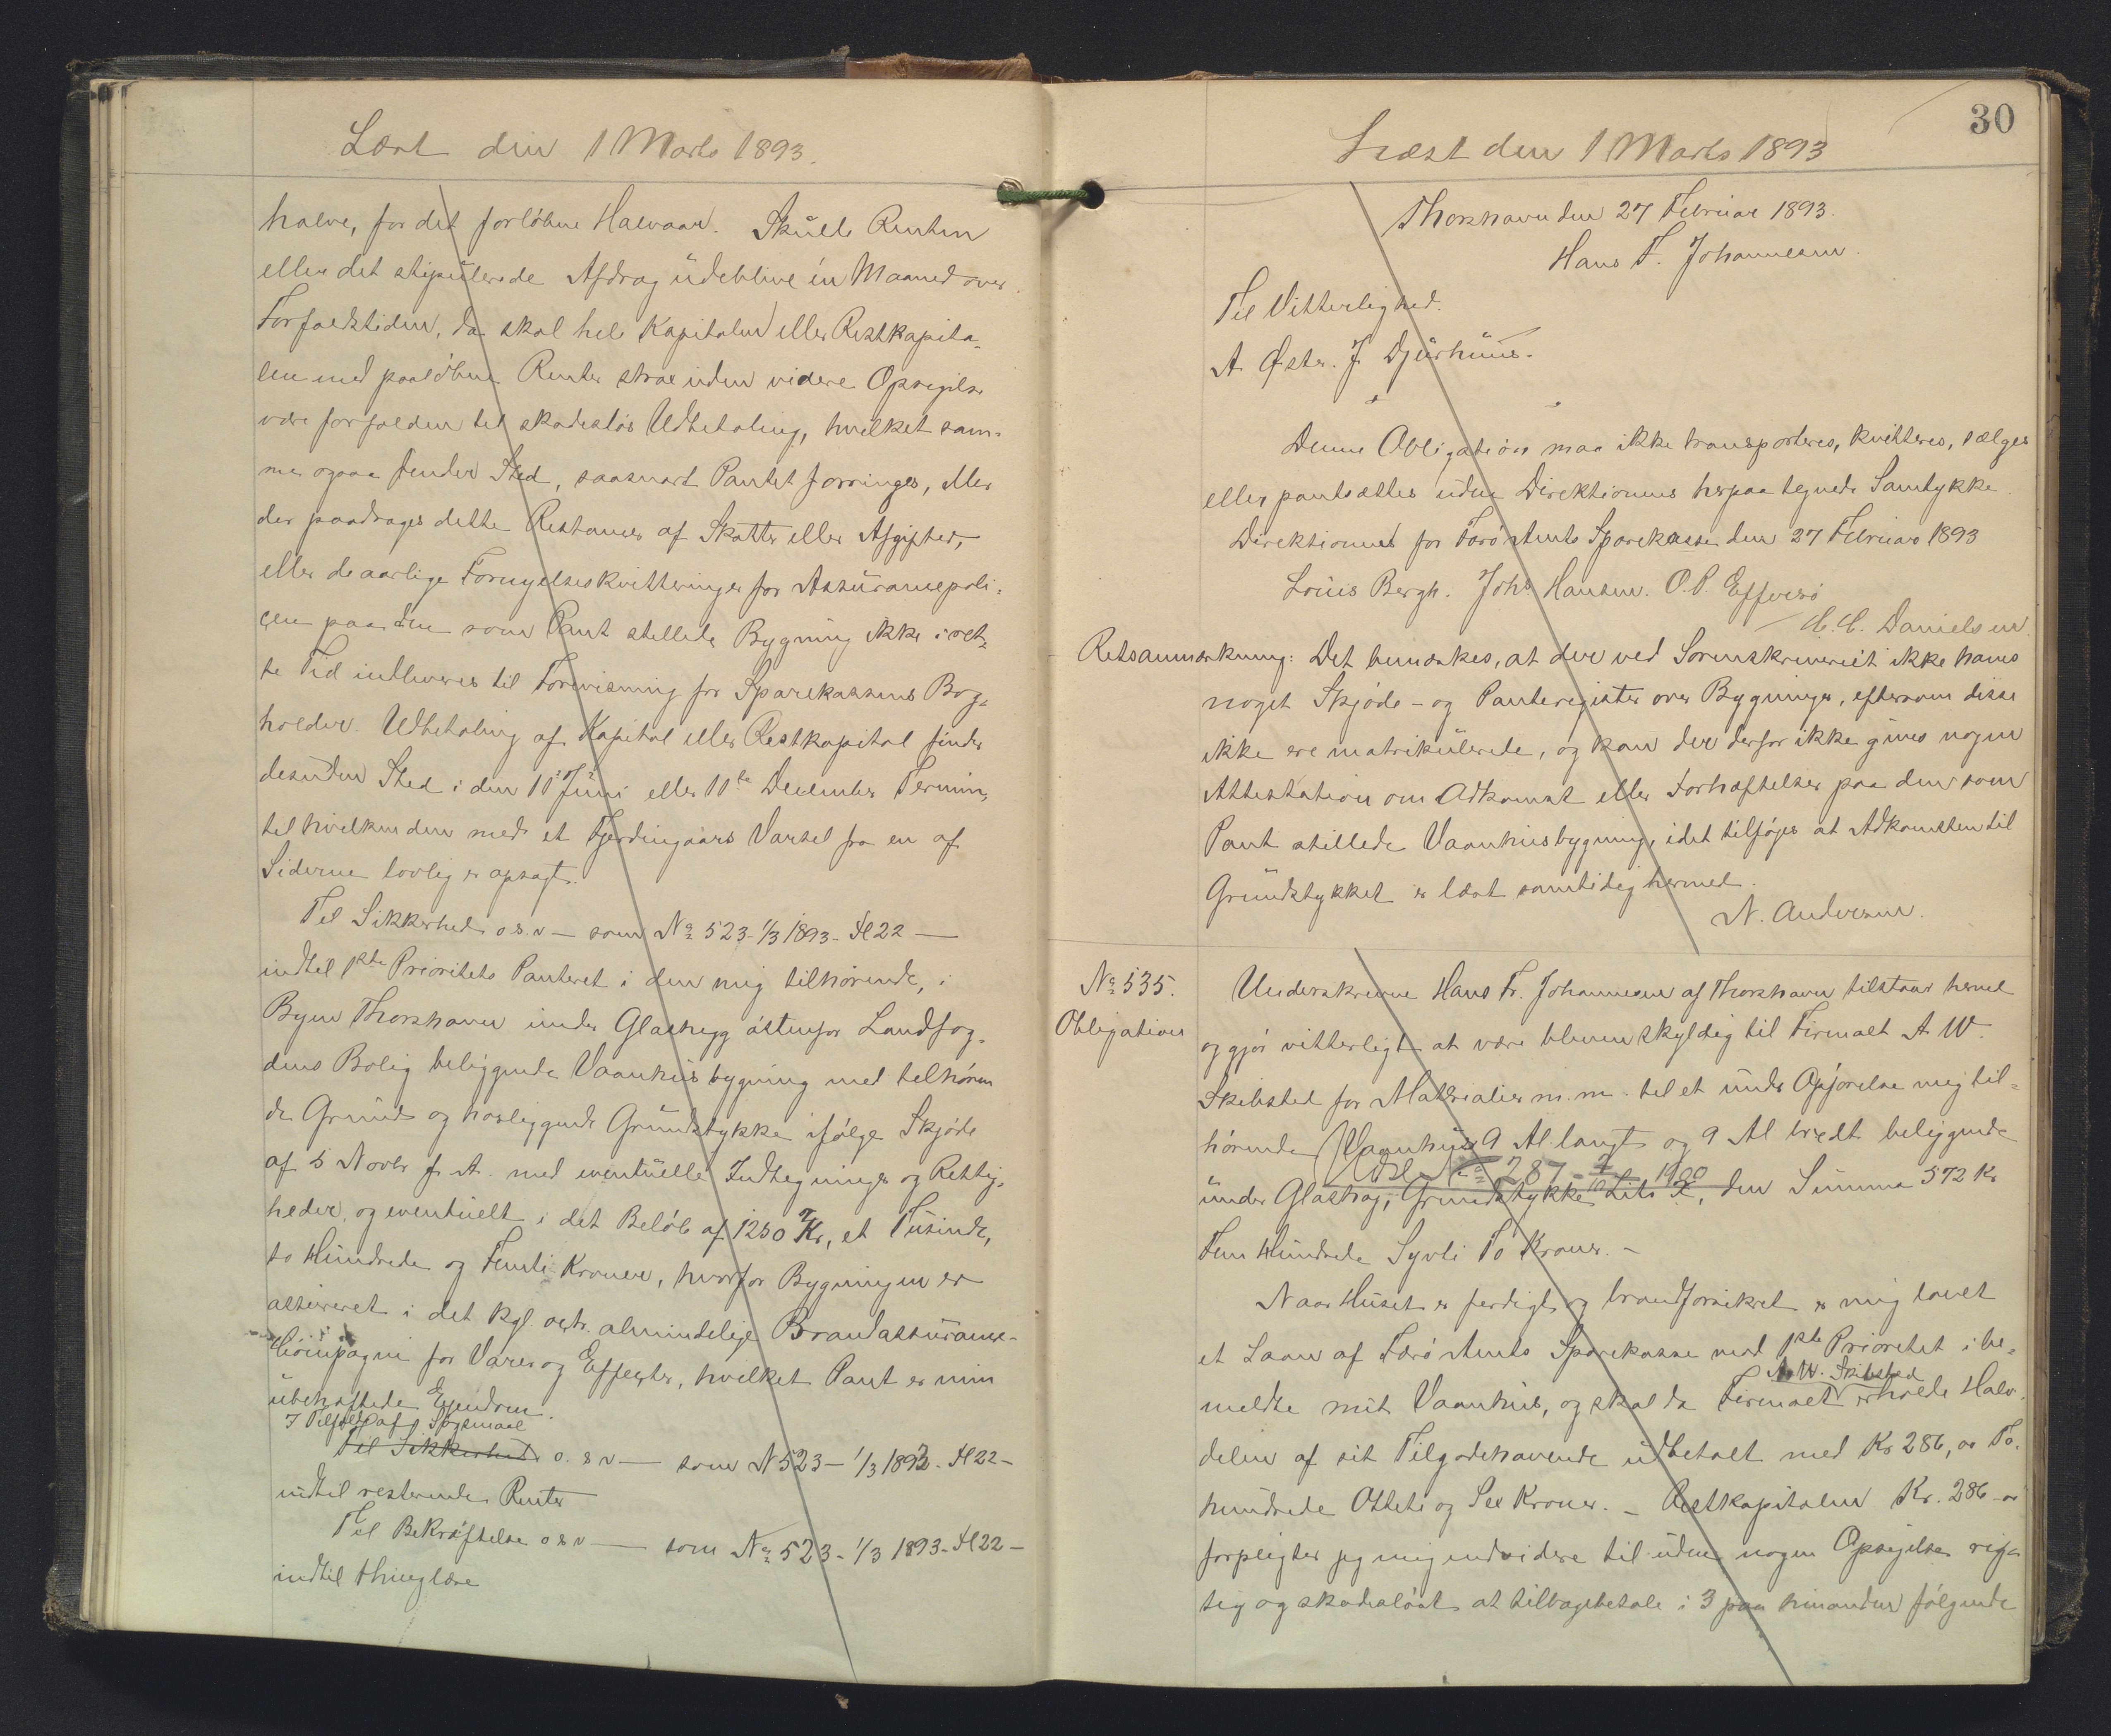 Læst den 1 Marts 1893.
halve, for det forløbne Halvaar. Skulle Renten
eller det stipulerede Afdrag udeblive én Maaned over
Forfaldstiden, da skal hele Kapitalen eller Restkapita-
len med paaløbne Renter strax uden videre Opsigelse
være forfalden til skadesløs Udbetaling, hvilket sam-
me ogsaa finder Sted, saasnart Pantet forringes, eller
der paadrages dette Restancer af Skatter eller Afgifter,
eller de aarlige Fornyelseskvitteringer for Assurancepoli-
cen paa den som Pant stillede Bygning ikke i ret-
te Tid indleveres til Forevisning for Sparekassens Bog-
holder. Udbetaling af Kapital eller Restkapital finder
desuden Sted i den 11 Juni eller 11te December Termin,
til hvilken den med et Fjerdingaars Varsel fra en af
Siderne lovlig er opsagt.
Til Sikkerhed o.s.v — som No 523 - 1/3 1893 - Fl 22 —
indtil 1ste Prioritets Panteret i den mig tilhørende, i
Byen Thorshavn under Glashegg østenfor Landfog-
dens Bolig beliggende Vaanhusbygning med tilhøren
de Grund og hosliggende Grundstykke ifølge Skjøde
af 5 Novbr f. A. med eventuelle Indtegninger og Rettig-
heder, og eventuelt i det Beløb af 1250 Kr, et Tusinde,
to Hundrede og Femti Kroner, hvorfor Bygningen er
assureret i det kgl. octr. almindelige Brandassurance-
Compagni for Varer og Effecter, hvilket Pant er min
ubehæftede Ejendom.
I Tilfælde af Søgsmaal
Til Sikkerhed o. s v — som N 523 - 1/3 1893 - Fl 22 -
indtil resterende Renter
Til Bekræftelse o s v — som No 523 - 1/3 1893 - Fl 22 -
indtil thinglæse
30
Læst den 1 Marts 1893
Thorshavn den 27 Februar 1893.
Hans F. Johannesen.
Til Vitterlighed.
A. Øster. J. Djurhuus.
Denne Obligation maa ikke transporteres, kvitteres, sælges
eller pantsættes uden Direktionens herpaa tegnede Samtykke.
Direktionen for Færø Amts Sparekasse den 27 Februar 1893
Louis Bergh. Johs Hansen. O. P. Effersø
C. C. Danielsen
Retsanmærkning: Det bemærkes, at der ved Sorenskriveriet ikke haves
noget Skjøde- og Panteregister over Bygninger, eftersom disse
ikke ere matrikulerede, og kan der derfor ikke gives nogen
Attestation om Adkomst eller Forhæftelser paa den som
Pant stillede Vaanhusbygning, idet tilføjes at Adkomsten til
Grundstykket er læst samtidig hermed.
N. Andersen.
No 535.
Obligation
Underskrevne Hans Fr. Johannesen af Thorshavn tilstaar herved
og gjør vitterligt at være bleven skyldig til Firmaet A W.
Skibsted for Materialier m. m. til et under Opførelse mig til-
hørende Vaanhus 9 Al. langt og 9 Al bredt beliggende
Udsl No 287 - 1900
under Glashag, Grundstykke Litr , den Summa 572 Kr
Fem Hundrede Syvti To Kroner. —
Naar Huset er færdigt og brandforsikret er mig lovet
et Laan af Færø Amts Sparekasse med 1ste Prioritet i be-
A. W. Skibsted
meldte mit Vaanhus, og skal da Firmaet erholde Halv-
delen af sit Tilgodehavende udbetalt med Kr 286, er To
hundrede Otteti og Sex Kroner. — Restkapitalen Kr. 286 - er
forpligter jeg mig endvidere til uden nogen Opsigelse rig-
tig og skadesløst at tilbagebetale i 3 paa hinanden følgende